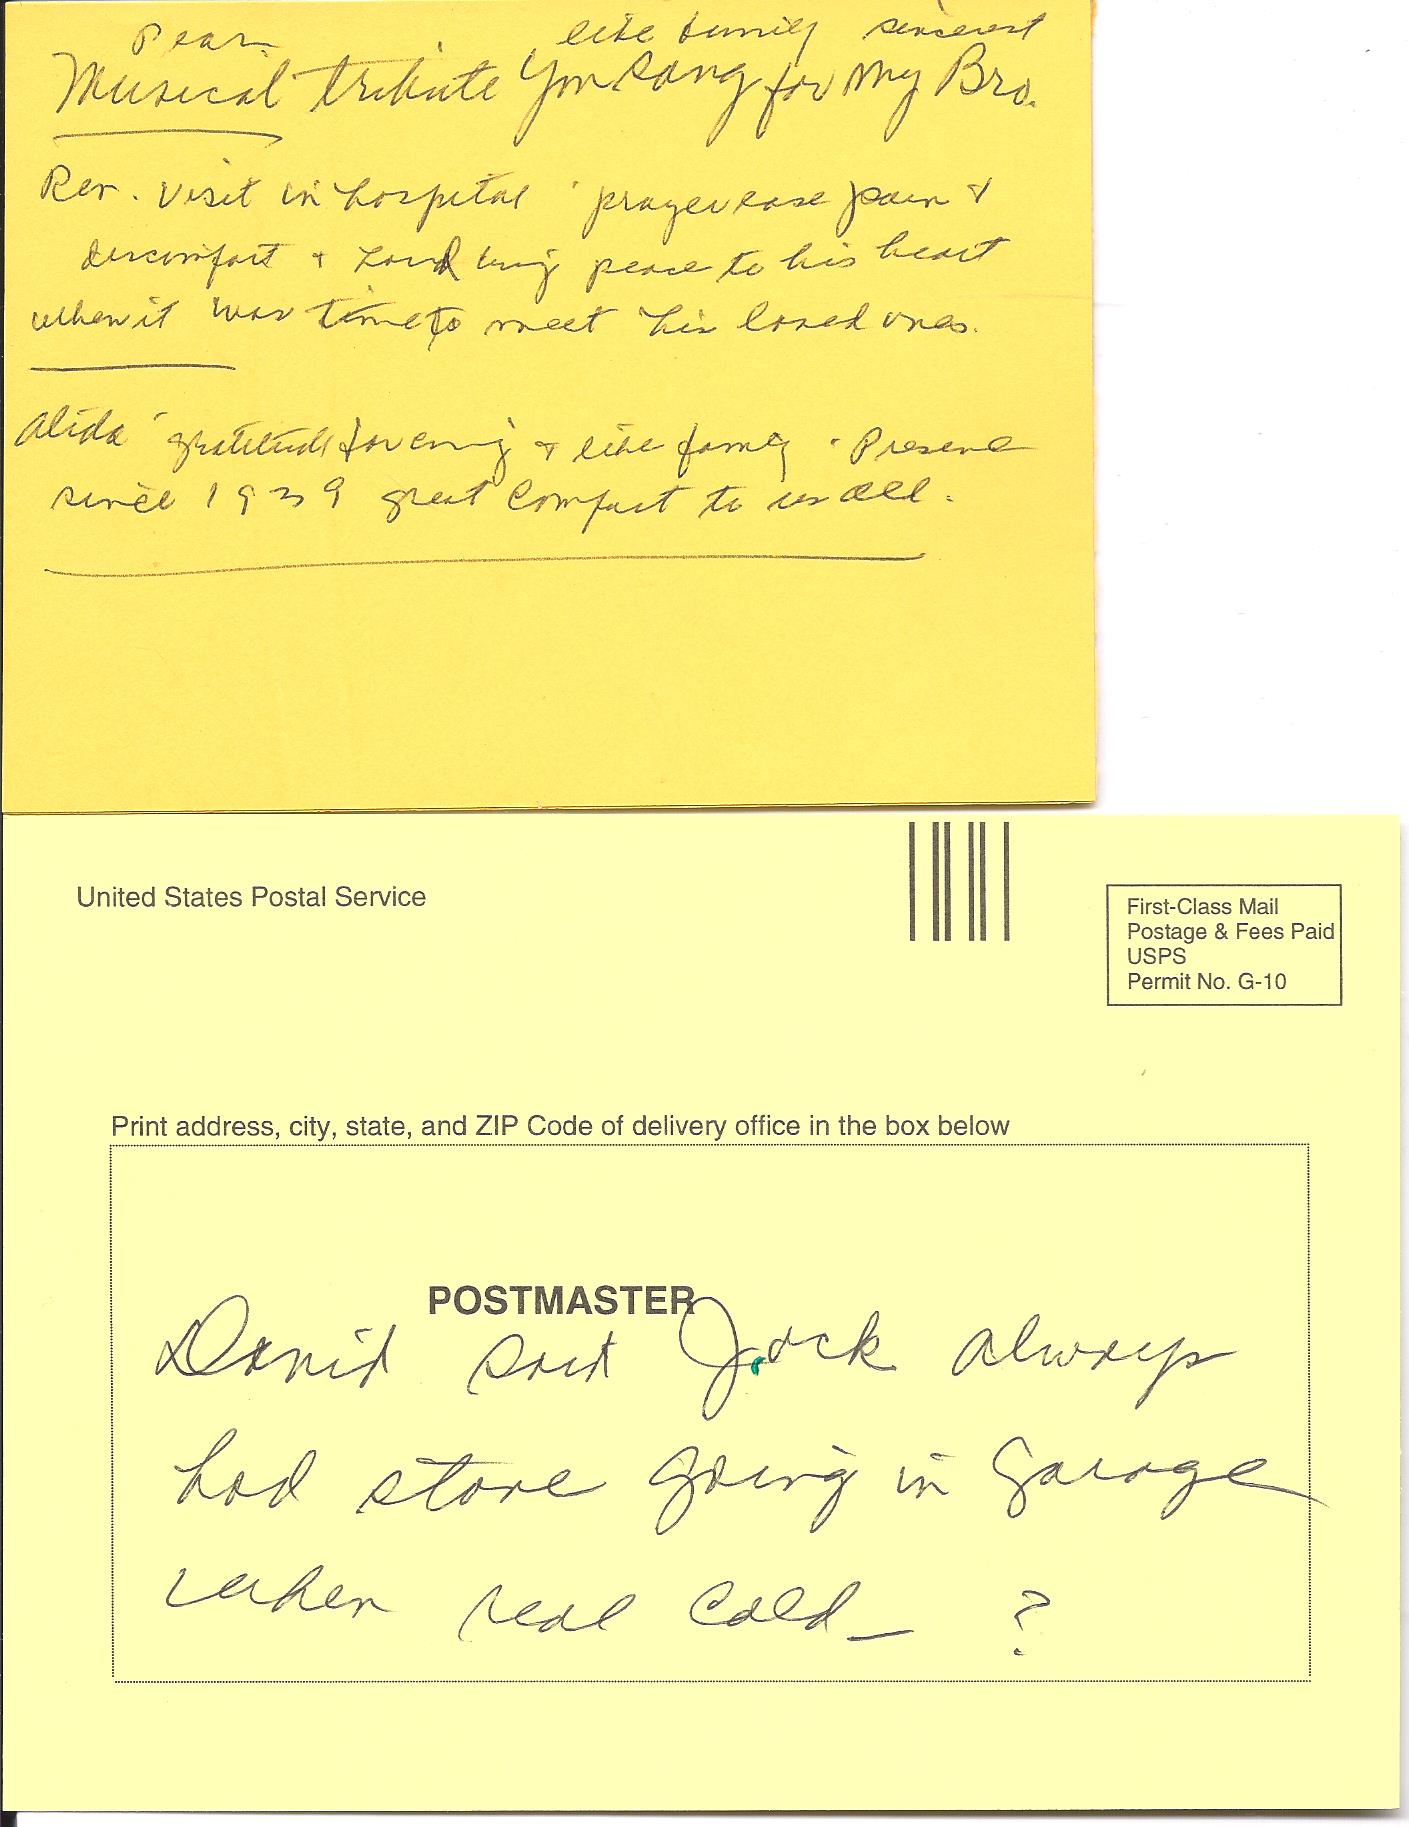 Dear like family sincerest
Musical tribute You Sang for My Bro.
Rev. visit in hospital prayer ease pain &
discomfort & Lord bring peace to his heart
when it was time to meet his loved ones.
Alida gratitude for caring & like family
since 1939 great comfort to us all.
United States Postal Service
First-Class Mail
Postage & Fees Paid
USPS
Permit No. G-10
Print address, city, state, and ZIP Code of delivery office in the box below
POSTMASTER
David said Jack always
had stove going in Garage
when real cold_ ?